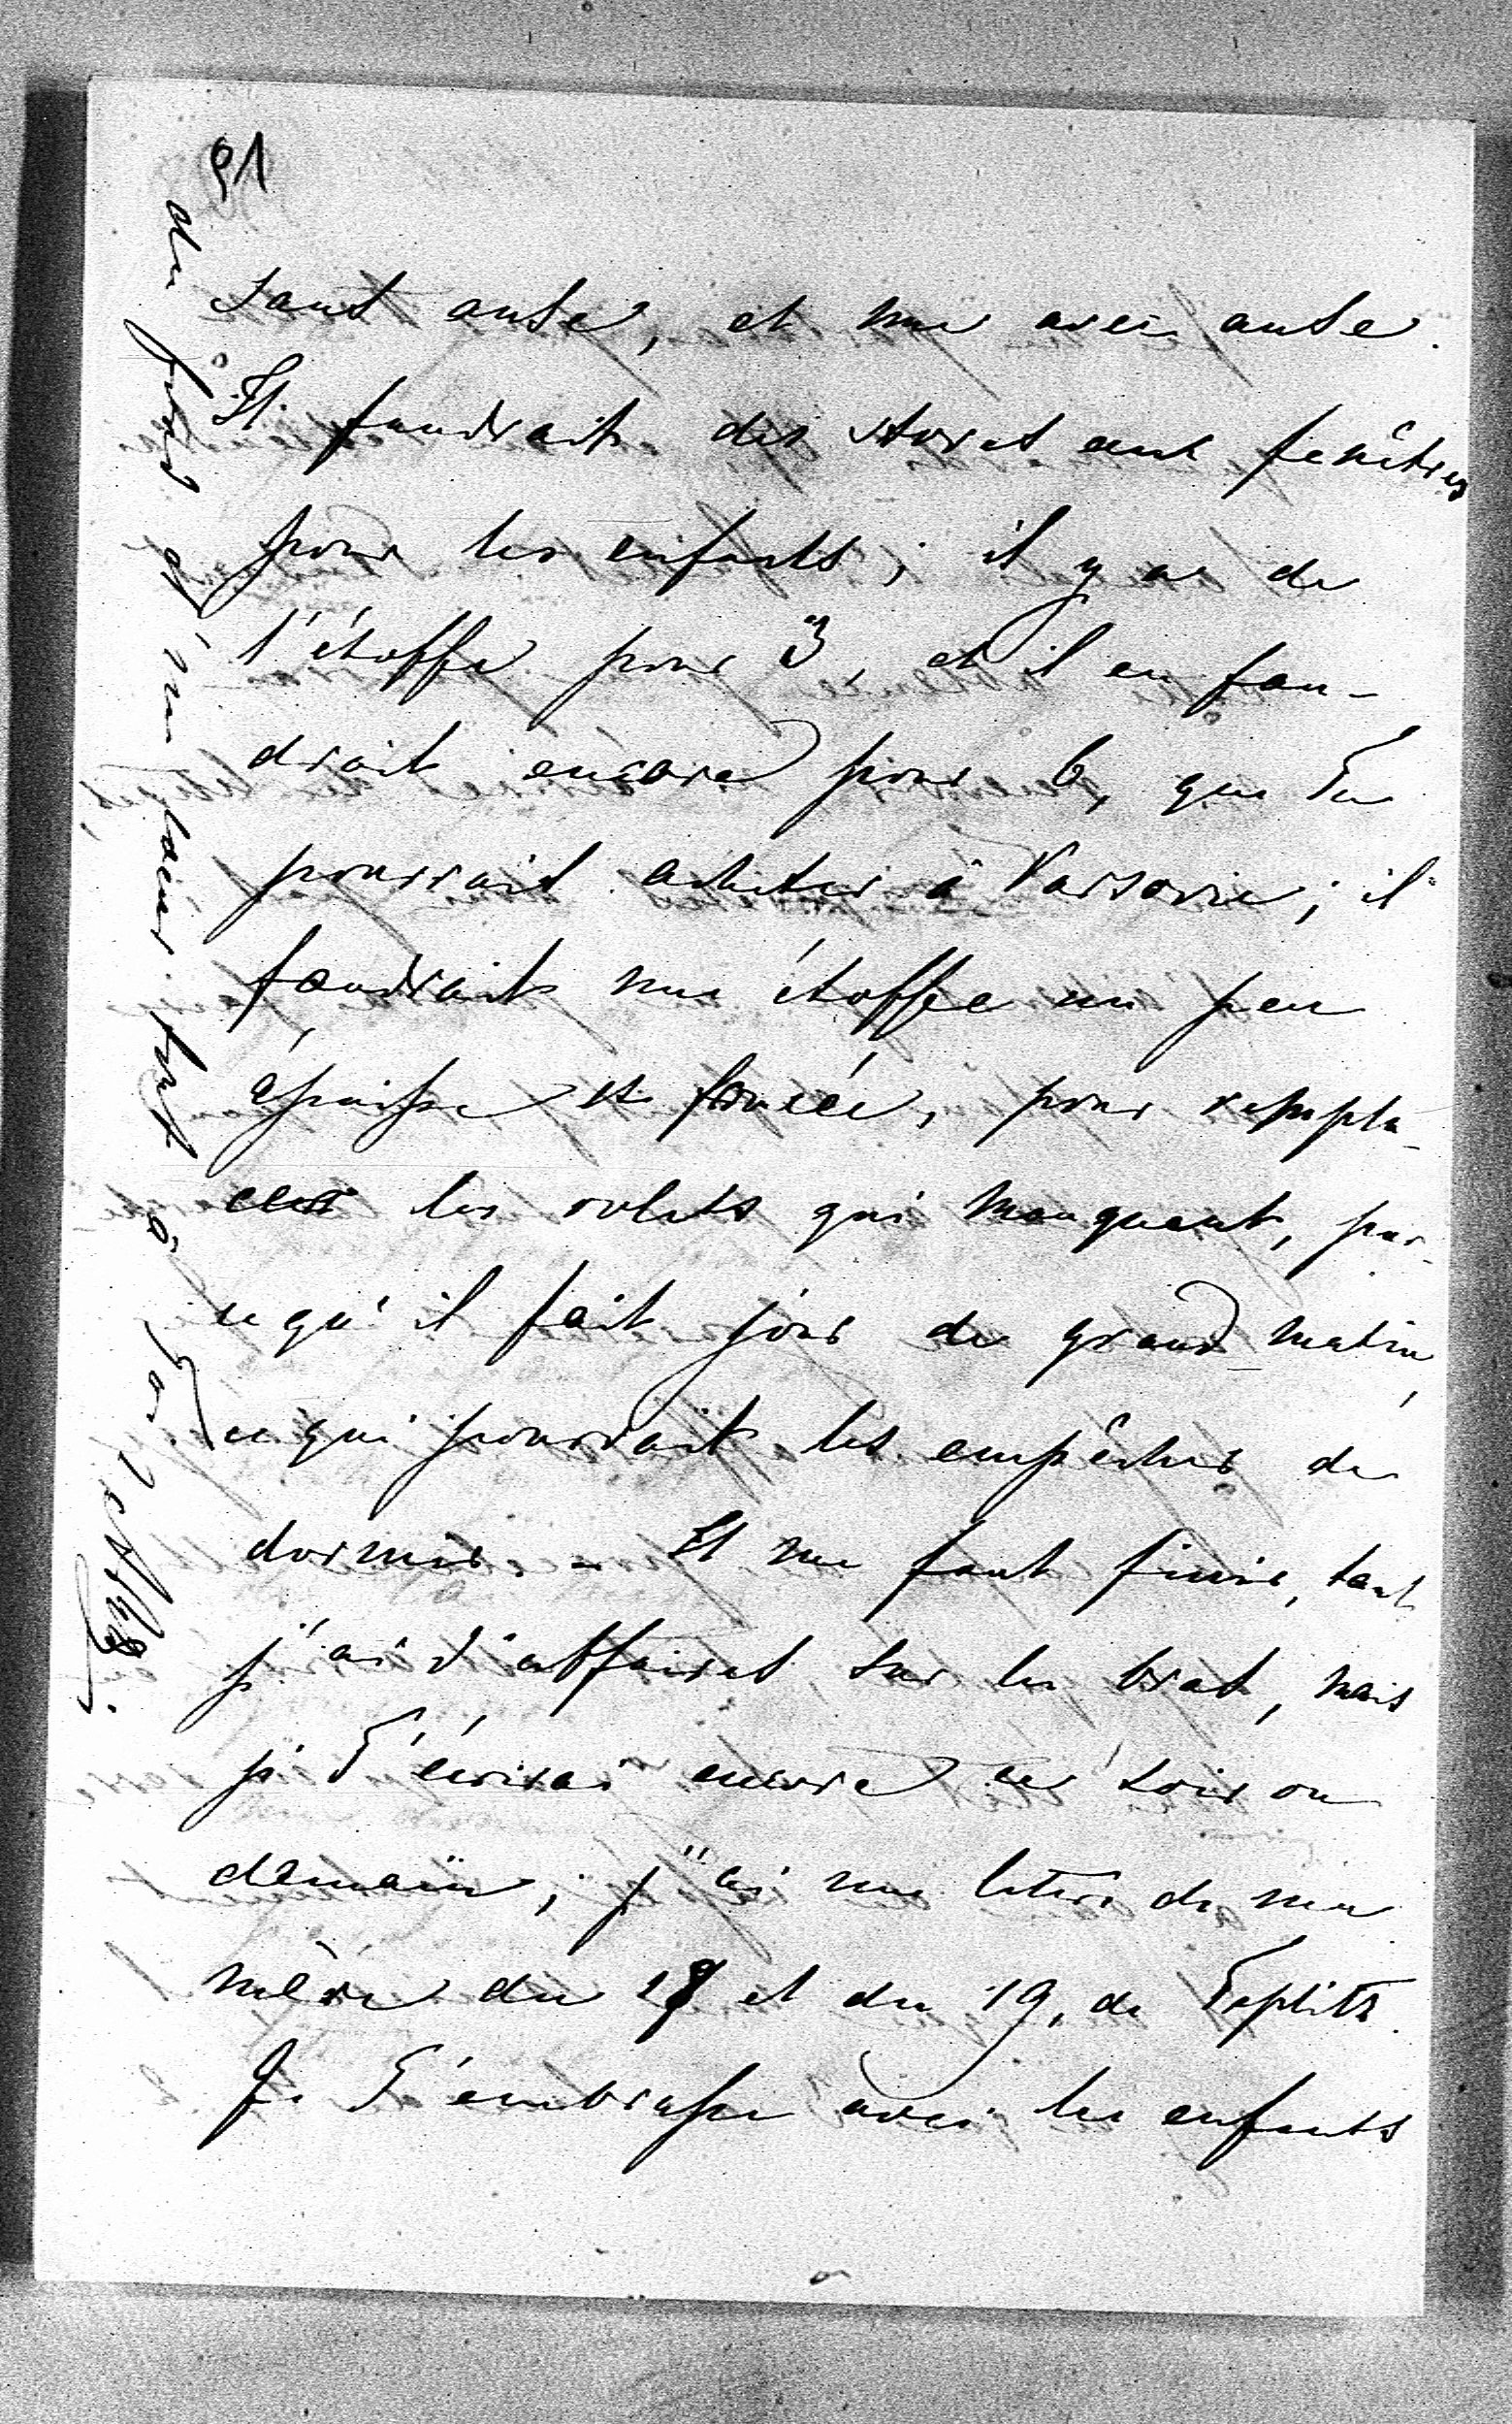 91
sans anse, et une avec anse.
Il faudrait des stores aux fenêtres
pour les enfants; il y a de
l'étoffe pour 3, et il en fau-
drait encore pour 6, que Tu
pourrais acheter à Varsovie; il
faudrait une étoffe un peu
épaisse et foncée, pour rempla-
cer les volets qui manquent, par-
ce qu'il fait jour de grand matin,
ce qui pourrait les empêcher de
dormir - Il me faut finir, tant
j'ai d'affaires sur les bras, mais
je T'écrirai encore ce soir ou
demain; j'ai une lettre de ma
mère du 18 et du 19, de Teplitz.
Je T'embrasse avec les enfants
du fond du cœur. tout à Toi